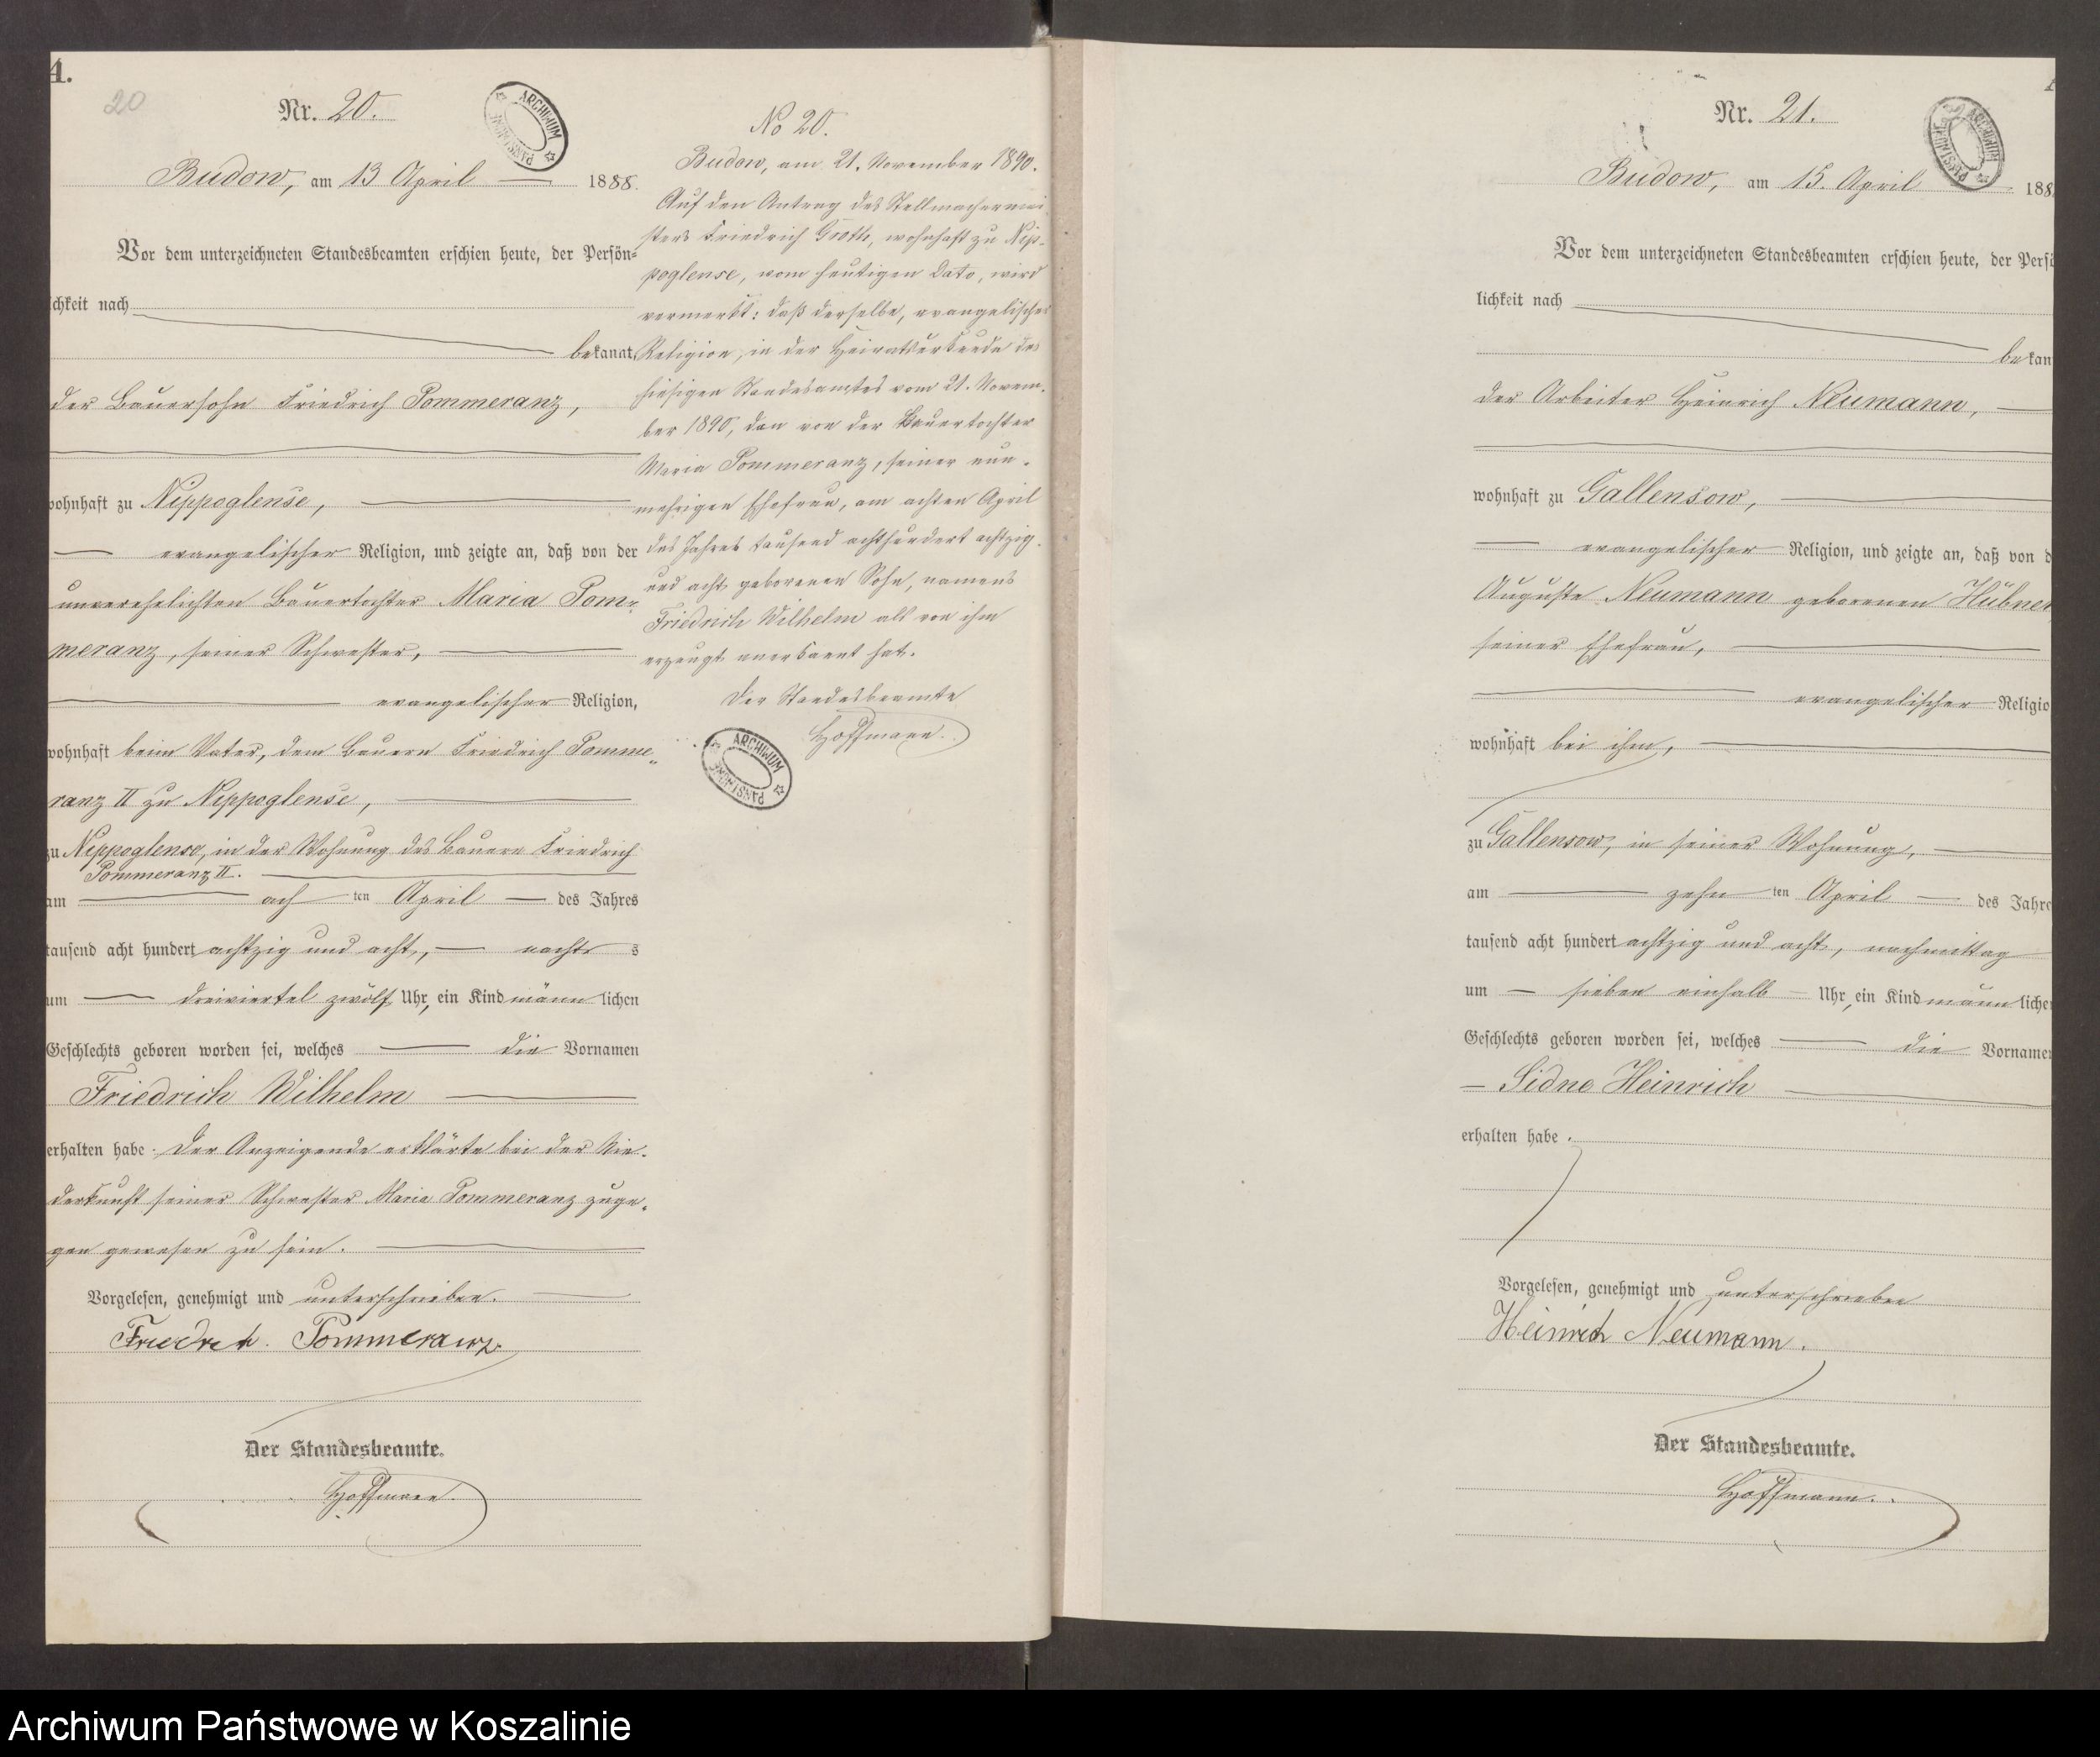 4.
20
Nr. 20.
ARCHIWUM PAŃSTWOWE
Budow, am 13 April 1888.
Vor dem unterzeichneten Standesbeamten erschien heute, der Persön-
lichkeit nach
bekannt,
der Bauersohn Friedrich Pommeranz,
wohnhaft zu Nippoglense,
evangelischer Religion, und zeigte an, daß von der
unverehelichten Bauertochter Maria Pom-
meranz, seiner Schwester,
evangelischer Religion,
wohnhaft beim Vater, dem Bauern Friedrich Pomme-
ranz II zu Nippoglense,
zu Nippoglense, in der Wohnung des Bauern Friedrich
Pommeranz II.
am achten April des Jahres
tausend acht hundert achtzig und acht, nachts
um dreiviertel zwölf Uhr, ein Kind männlichen
Geschlechts geboren worden sei, welches die Vornamen
Friedrich Wilhelm
erhalten habe. Der Anzeigende erklärte bei der Nie-
derkunft seiner Schwester Maria Pommeranz zuge-
gen gewesen zu sein.
Vorgelesen, genehmigt und unterschrieben.
Friedrch. Pommeranz
Der Standesbeamte.
Hoffmann.
No 20.
Budow, am 21. November 1890.
Auf den Antrag des Stellmachermei-
sters Friedrich Groth, wohnhaft zu Nip-
poglense, vom heutigen Dato, wird
vermerkt: daß derselbe, evangelischer
Religion, in der Heiratsurkunde des
hiesigen Standesamtes vom 21. Novem-
ber 1890, den von der Bauertochter
Maria Pommeranz, seiner nun-
mehrigen Ehefrau, am achten April
des Jahres tausend achthundert achtzig
und acht geborenen Sohn, namens
Friedrich Wilhelm als von ihm
erzeugt anerkannt hat.
Der Standesbeamte
Hoffmann.
ARCHIWUM PAŃSTWOWE
Nr. 21.
ARCHIWUM PAŃSTWOWE
Budow, am 15. April 188
Vor dem unterzeichneten Standesbeamten erschien heute, der Persö
lichkeit nach
bekan
der Arbeiter Heinrich Neumann,
wohnhaft zu Gallensow,
evangelischer Religion, und zeigte an, daß von d
Auguste Neumann geborenen Hübner,
seiner Ehefrau,
evangelischer Religio
wohnhaft bei ihm,
zu Gallensow, in seiner Wohnung,
am zehnten April des Jahre
tausend acht hundert achtzig und acht, nachmittag
um sieben einhalb Uhr, ein Kind männliche
Geschlechts geboren worden sei, welches die Vorname
Heinrich
erhalten habe.
Vorgelesen, genehmigt und unterschrieben
Heinrich Neumann.
Der Standesbeamte.
Hoffmann.
Archiwum Państwowe w Koszalinie